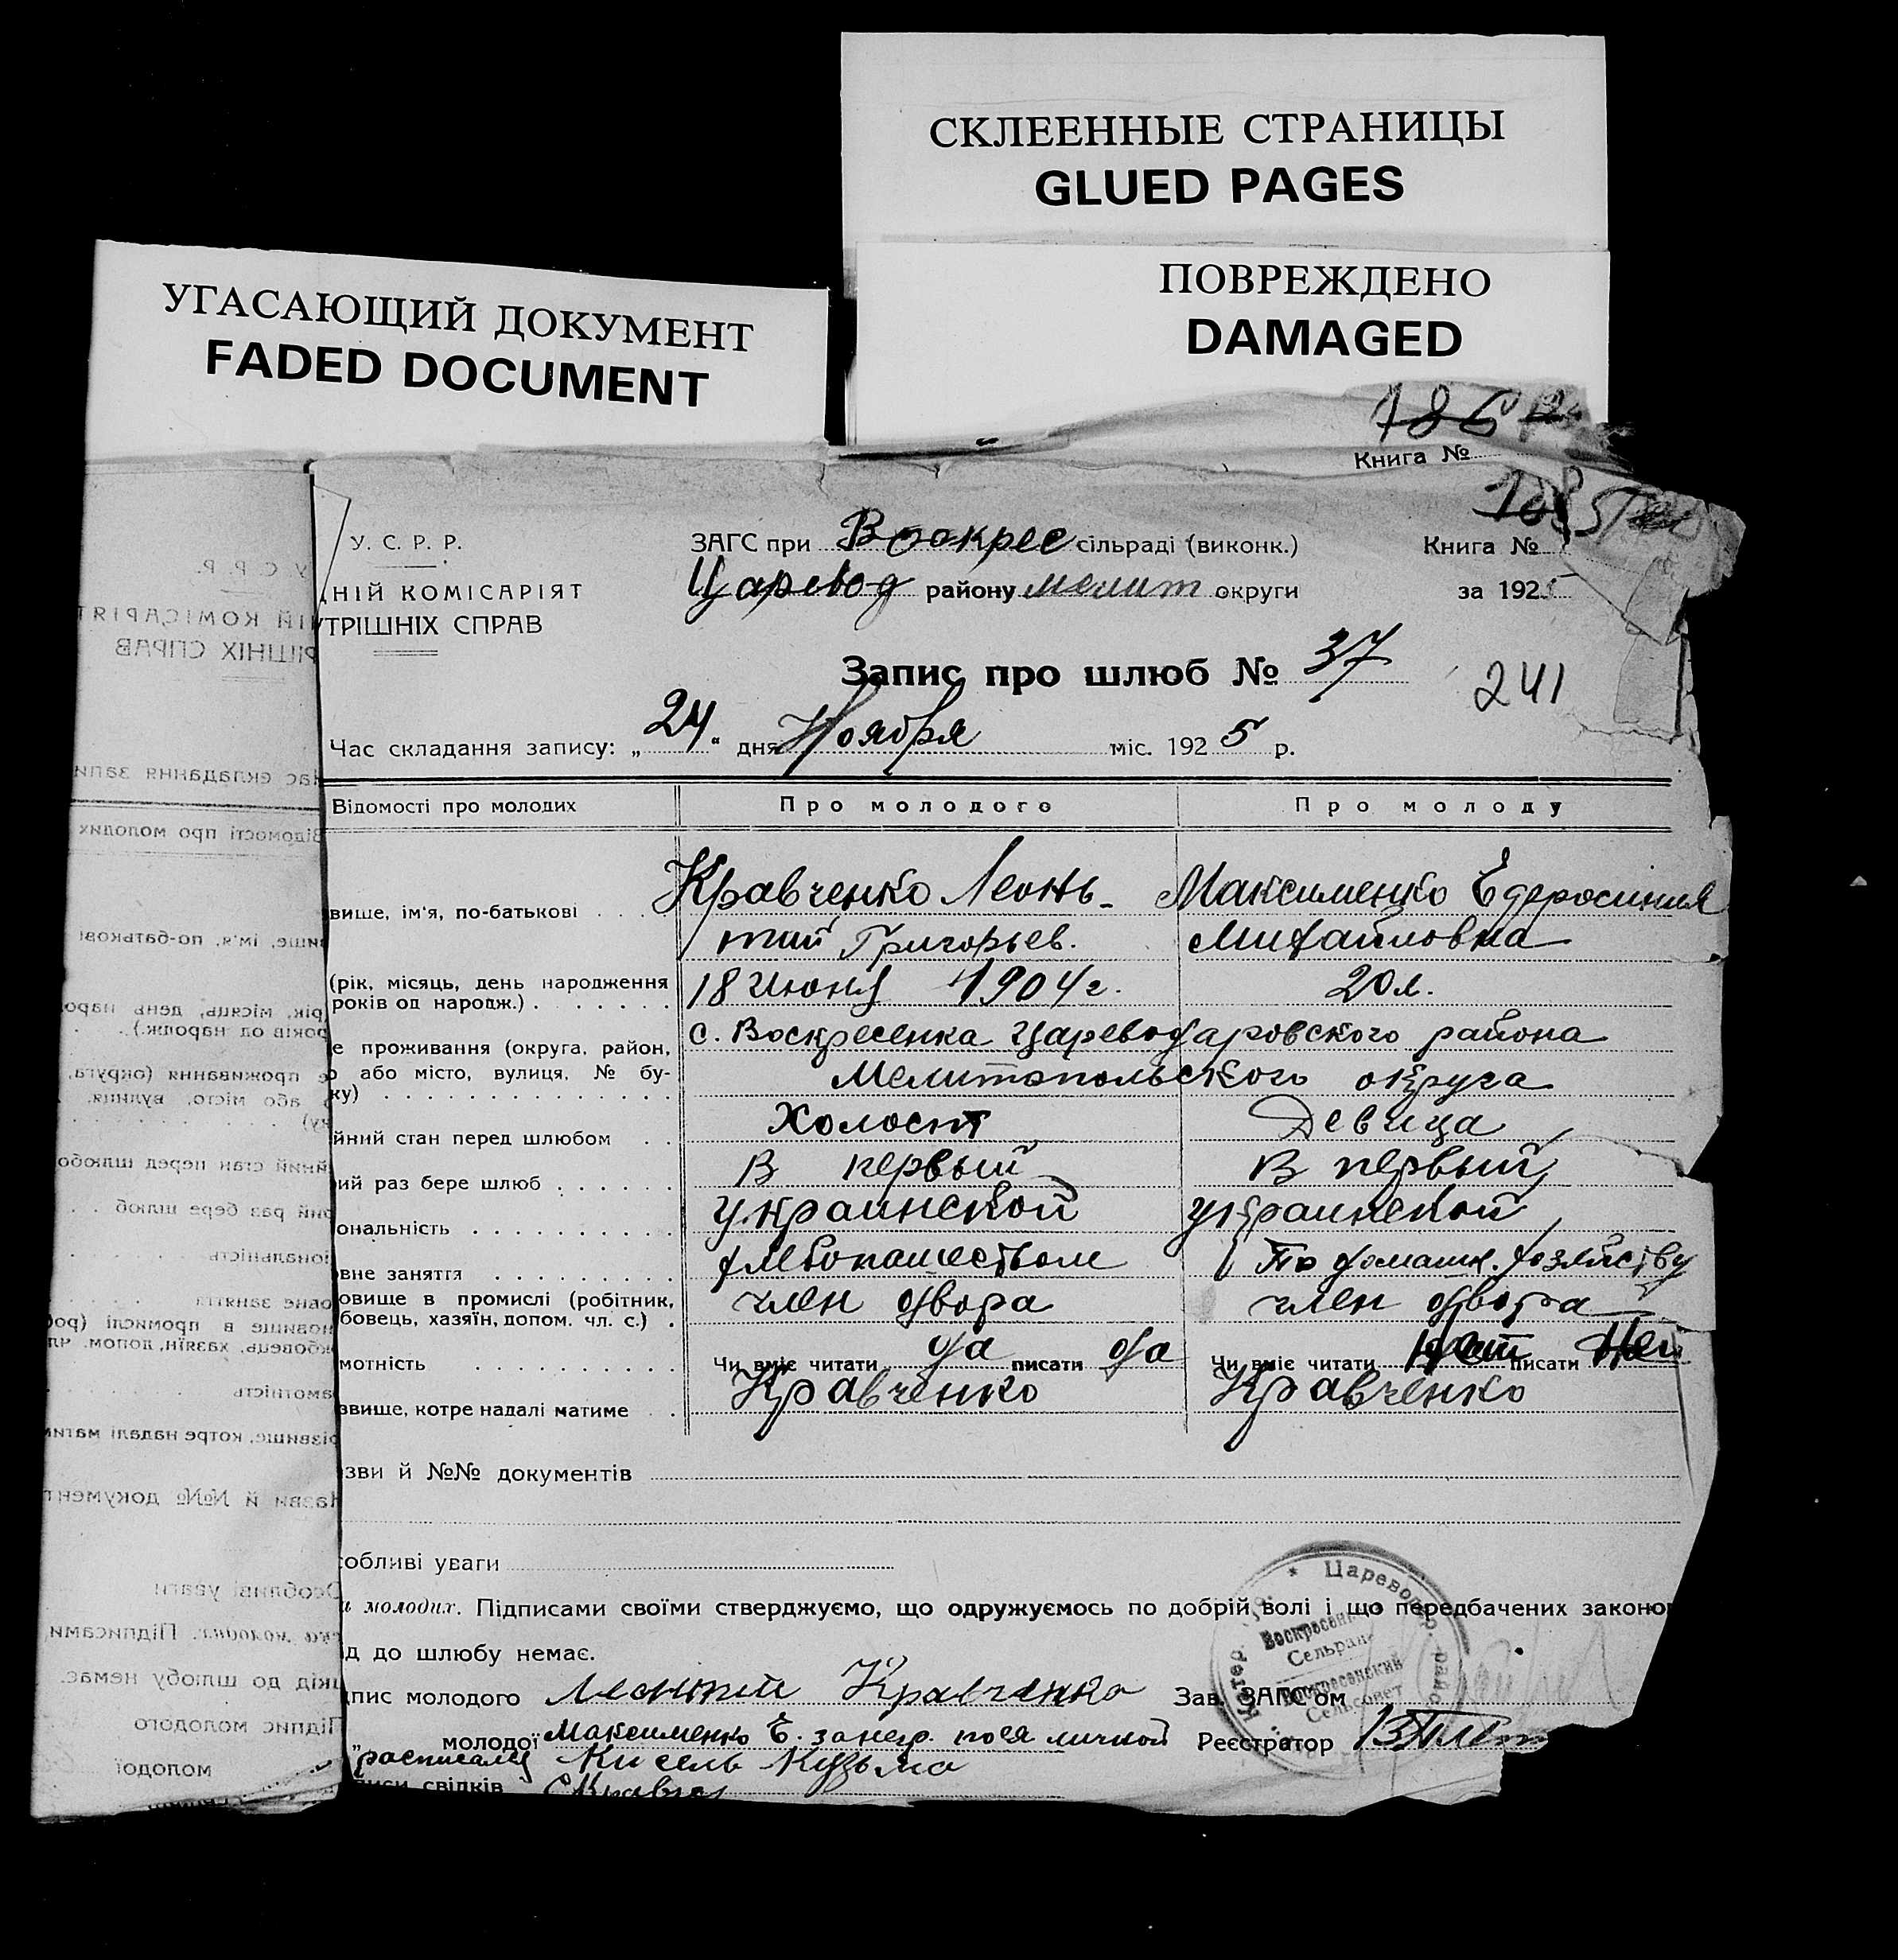 СКЛЕЕННЫЕ СТРАНИЦЫ
GLUED PAGES
УГАСАЮЩИЙ ДОКУМЕНТ
FADED DOCUMENT
ПОВРЕЖДЕНО
DAMAGED
786
Книга №
У. С. Р. Р.
ЗАГС при Воскрес сільраді (виконк.)
Книга №
НІЙ КОМІСАРІЯТ
Царевод району мелит округи
за 1925
УТРІШНІХ СПРАВ
Запис про шлюб № 37
241
Час складання запису: „24“ дня Ноября міс. 1925 р.
Відомості про молодих Про молодого Про молоду
вище, ім'я, по-батькові . . . Кравченко Леонь- Максименко Ефросиния
тий Григорьев. Михайловна
(рік, місяць, день народження
років од народж.) . . . . . . 18 Июня 1904 г. 20 л.
с. Воскресенка Цареводаровского района
е проживання (округа, район,
о або місто, вулиця, № бу-
Мелитопольского округа
ку) . . . . . . . . . . . . . .
йний стан перед шлюбом . . Холост Девица
ий раз бере шлюб . . . . . . В первый В первый
ональність . . . . . . . . . . украинской украинской
вне заняття . . . . . . . . . хлебопашеством По домашн. хозяйству
овище в промислі (робітник,
бовець, хазяїн, допом. чл. с.) . член двора член двора
мотність . . . . . . . . . . Чи вміє читати да писати да Чи вміє читати нет писати Нет
звище, котре надалі матиме . . Кравченко Кравченко
зви й №№ документів
собливі уваги
молодих. Підписами своїми стверджуємо, що одружуємось по добрій волі і що передбачених законо
д до шлюбу немає.
пис молодого Леонтий Кравченко Зав. ЗАГС'ом
„ молодої Максименко Е. за негр. по ея личной Реєстратор
расписался Кисель Кузьма
писи свідків
* Царевопр. райо
Воскресен
Сельрад
Воскресенский
Сельсовет
У. С. Р. Р.
НІЙ КОМІСАРІЯТ
РІШНІХ СПРАВ
Час складання запи
Відомості про молодих
вище, ім'я, по-батькові
рік, місяць, день наро
років од народж.) .
е проживання (округа,
о або місто, вулиця,
ку) . . . . . .
йний стан перед шлюбо
рий раз бере шлюб . .
іональність
овне заняття
новище в промислі (роб
жбовець, хазяїн, допом. чл
амотність
різвище, котре надалі мати
Назви й №№ документ
Особливі уваги
молодих. Підписами
шкід до шлюбу немає.
Підпис молодого
молодої